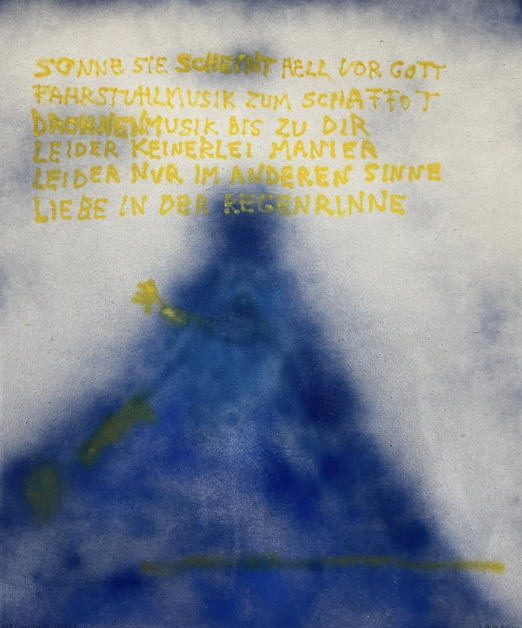 SONNE SIE SCHEINT HELL VOR GOTT
FAHRSTUHLMUSIK ZUM SCHAFFOT
DROHNENMUSIK BIS ZU DIR
LEIDER KEINERLEI MANIER
LEIDER NUR IM ANDEREN SINNE
LIEBE IN DER REGENRINNE